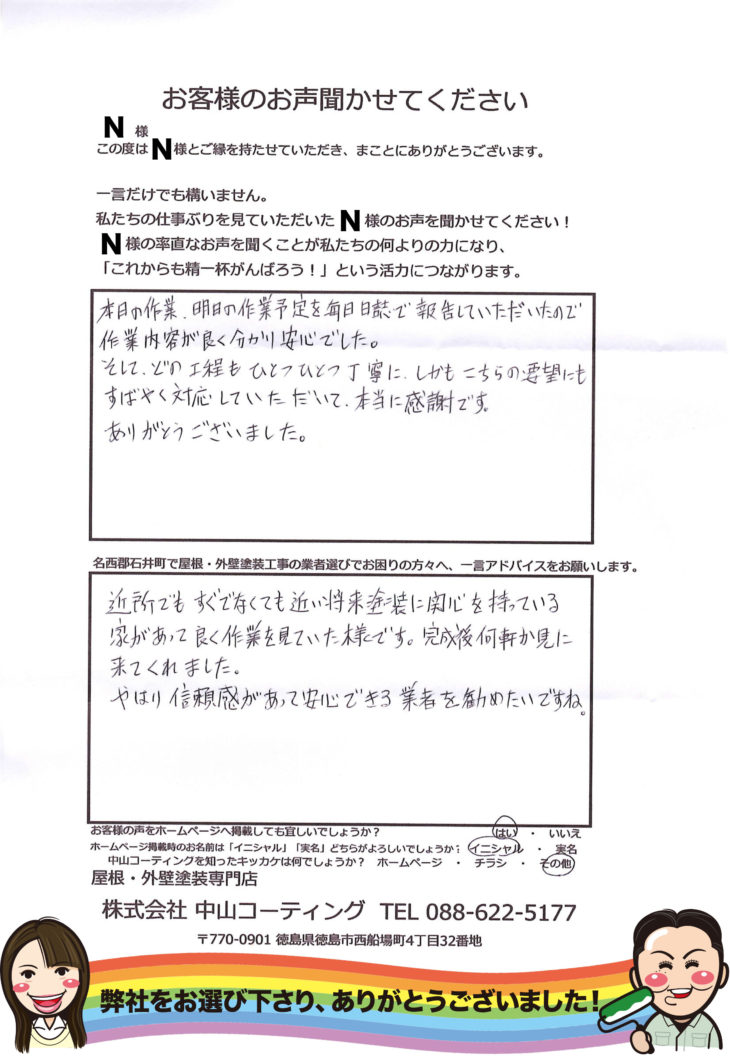 お客様のお声聞かせてください
N 様
この度は N 様とご縁を持たせていただき、まことにありがとうございます。
一言だけでも構いません。
私たちの仕事ぶりを見ていただいた N 様のお声を聞かせてください！
N 様の率直なお声を聞くことが私たちの何よりの力になり、
「これからも精一杯がんばろう！」という活力につながります。
本日の作業、明日の作業予定を毎日日誌で報告していただいたので
作業内容が良く分かり安心でした。
そして、どの工程もひとつひとつ丁寧に、しかもこちらの要望にも
すばやく対応していただいて、本当に感謝です。
ありがとうございました。
名西郡石井町で屋根・外壁塗装工事の業者選びでお困りの方々へ、一言アドバイスをお願いします。
近所でもすぐでなくても近い将来塗装に関心を持っている
家があって良く作業を見ていた様です。完成後何軒か見に
来てくれました。
やはり信頼感があって安心できる業者を勧めたいですね。
お客様の声をホームページへ掲載しても宜しいでしょうか？ はい ・ いいえ
ホームページ掲載時のお名前は「イニシャル」「実名」どちらがよろしいでしょうか： イニシャル ・ 実名
中山コーティングを知ったキッカケは何でしょうか？ ホームページ ・ チラシ ・ その他
屋根・外壁塗装専門店
株式会社 中山コーティング TEL 088-622-5177
〒770-0901 徳島県徳島市西船場町4丁目32番地
弊社をお選び下さり、ありがとうございました！